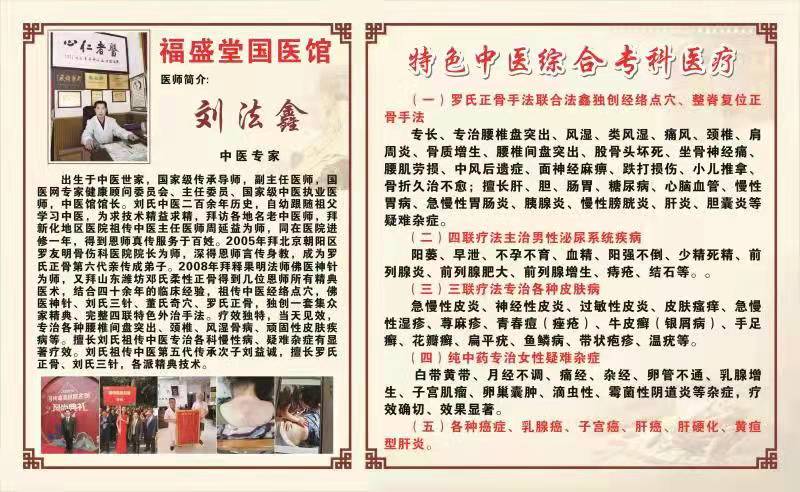 醫者仁心
福盛堂国医馆
医师简介:
刘法鑫
中医专家
出生于中医世家，国家级传承导师，副主任医师，国
医网专家健康顾问委员会、主任委员、国家级中医执业医
师，中医馆馆长。刘氏中医二百余年历史，自幼跟随祖父
学习中医，为求技术精益求精，拜访各地名老中医师，拜
新化地区医院祖传中医主任医师周延益为师，同在医院进
修一年，得到恩师真传服务于百姓。2005年拜北京朝阳区
罗友明骨伤科医院院长为师，深得恩师言传身教，成为罗
氏正骨第六代亲传成弟子。2008年拜释果明法师佛医神针
为师，又拜山东潍坊邓氏柔性正骨得到几位恩师所有精典
医术，结合四十余年的临床经验，祖传中医经络点穴，佛
医神针、刘氏三针、董氏奇穴、罗氏正骨，独创一套集众
家精典、完整四联特色外治手法。疗效独特，当天见效，
专治各种腰椎间盘突出、颈椎、风湿骨病、顽固性皮肤疾
病等。擅长刘氏祖传中医专治各科慢性病、疑难杂症有显
著疗效。刘氏祖传中医第五代传承次子刘益诚，擅长罗氏
正骨、刘氏三针，各派精典技术。
特色中医综合专科医疗
（一）罗氏正骨手法联合法鑫独创经络点穴、整脊复位正
骨手法
专长、专治腰椎盘突出、风湿、类风湿、痛风、颈椎、肩
周炎、骨质增生、腰椎间盘突出、股骨头坏死、坐骨神经痛、
腰肌劳损、中风后遗症、面神经麻痹、跌打损伤、小儿推拿、
骨折久治不愈；擅长肝、胆、肠胃、糖尿病、心脑血管、慢性
胃病、急慢性胃肠炎、胰腺炎、慢性膀胱炎、肝炎、胆囊炎等
疑难杂症。
（二）四联疗法主治男性泌尿系统疾病
阳萎、早泄、不孕不育、血精、阳强不倒、少精死精、前
列腺炎、前列腺肥大、前列腺增生、痔疮、结石等。。
（三）三联疗法专治各种皮肤病
急慢性皮炎、神经性皮炎、过敏性皮炎、皮肤瘙痒、急慢
性湿疹、荨麻疹、青春痘（痤疮）、牛皮癣（银屑病）、手足
癣、花瓣癣、扁平疣、鱼鳞病、带状疱疹、温疣等。
（四）纯中药专治女性疑难杂症
白带黄带、月经不调、痛经、杂经、卵管不通、乳腺增
生、子宫肌瘤、卵巢囊肿、滴虫性、霉菌性阴道炎等杂症，疗
效确切、效果显著。
（五）各种癌症、乳腺癌、子宫癌、肝癌、肝硬化、黄疸
型肝炎。